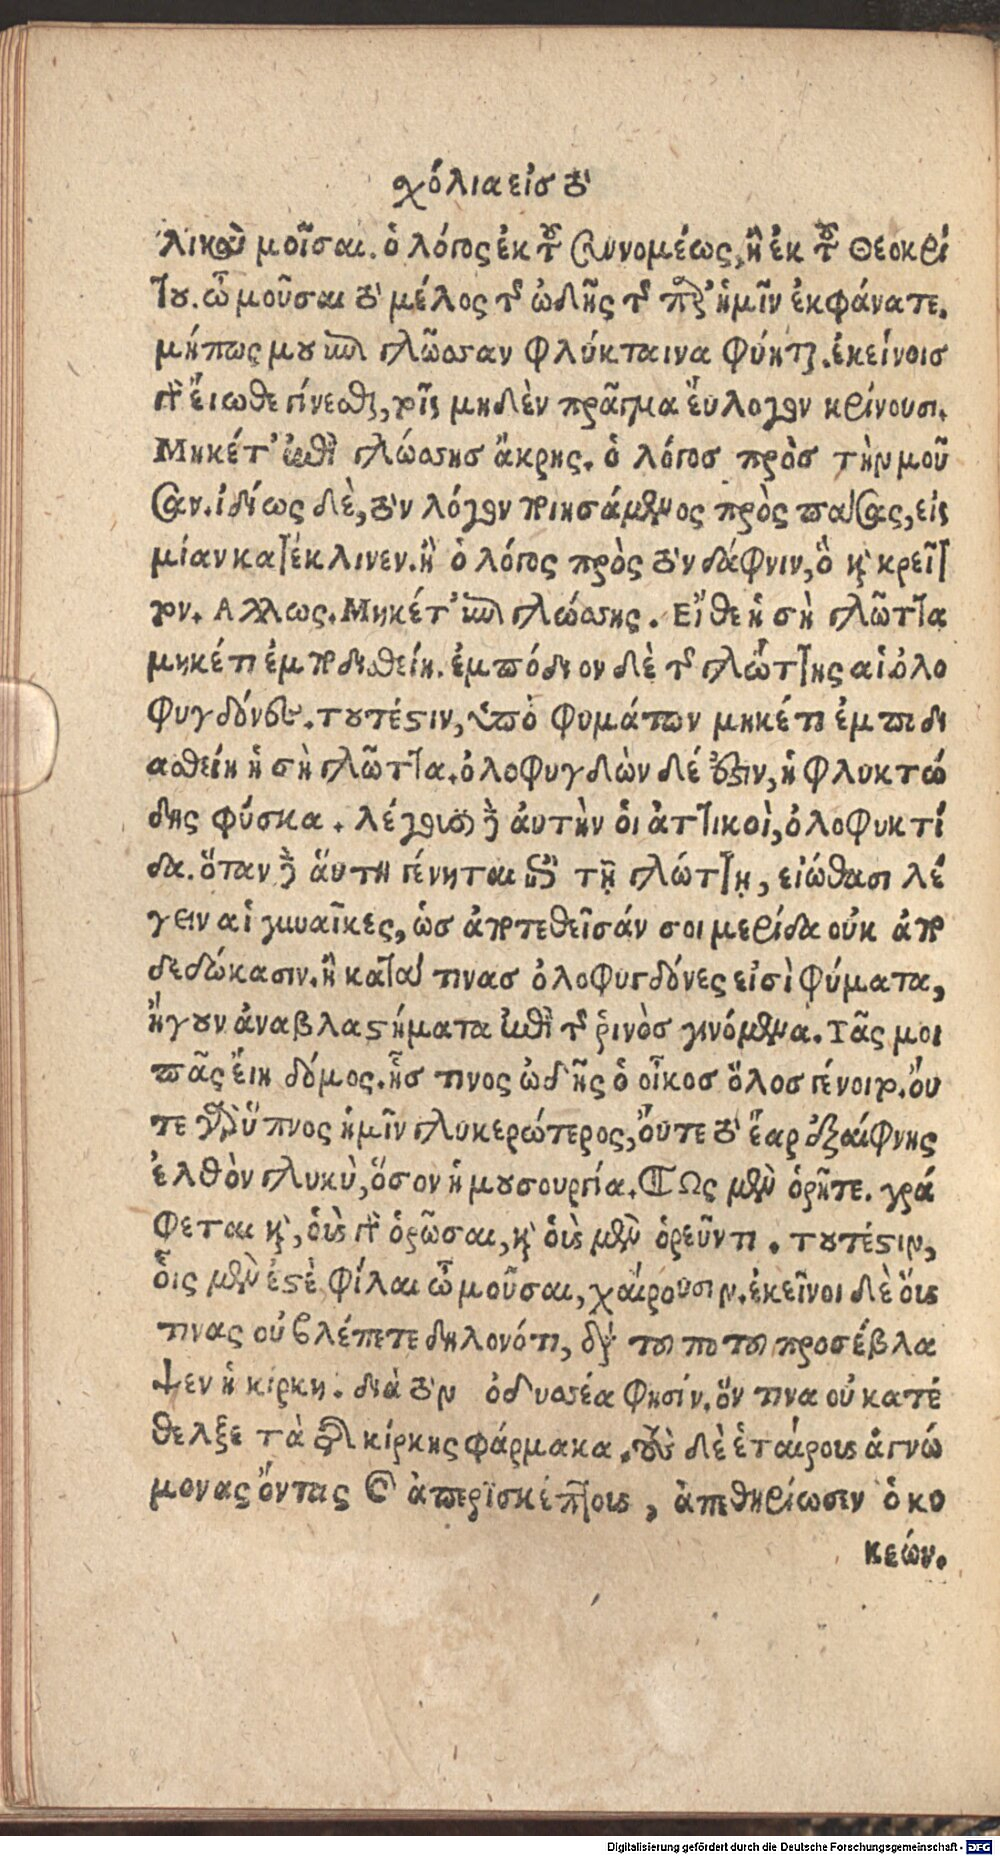 χόλια εἰς τὸ
λικαὶ μοῖσαι. ὁ λόγος ἐκ τοῦ συνομέως, ἢ ἐκ τοῦ Θεοκρί
του. ὦ μοῦσαι τὸ μέλος τῆς ὠδῆς τῆς παρ' ἡμῖν ἐκφάνατε.
μήπως μου ἐπὶ γλῶσσαν φλύκταινα φύηται. ἐκείνοις
γὰρ εἴωθε γίνεσθαι, τοῖς μηδὲν πρᾶγμα εὔλογον κρίνουσι.
Μηκέτ' ἐπὶ γλώσσης ἄκρης. ὁ λόγος πρὸς τὴν μοῦ
σαν. ἰδίως δὲ, τὸν λόγον ποιησάμενος πρὸς πάσας, εἰς
μίαν κατέκλινεν. ἢ ὁ λόγος πρὸς τὸν δάφνιν, ὃ καὶ κρεῖτ
τον. Αλλως. Μηκέτ' ἐπὶ γλώσσης. Εἴθε ἡ σὴ γλῶττα
μηκέτι ἐμποδισθείη. ἐμπόδιον δὲ τῆς γλώττης αἱ ὀλο
φυγδόνες. τουτέστιν, ὑπὸ φυμάτων μηκέτι ἐμποδι
σθείη ἡ σὴ γλῶττα. ὀλοφυγδὼν δέ ἐστιν, ἡ φλυκτώ
δης φύσκα. λέγουσι δὲ ἀυτὴν ὁι ἀττικοὶ, ὀλοφυκτί
δα. ὅταν δὲ ἅυτη γένηται ἐν τῇ γλώττῃ, εἰώθασι λέ
γειν αἱ γυναῖκες, ὡς ἀποτεθεῖσάν σοι μερίδα οὐκ ἀπο
δεδώκασιν. ἢ κατά τινας ὀλοφυγδόνες εἰσὶ φύματα,
ἤγουν ἀναβλαστήματα ἐπὶ τῆς ῥινὸς γινόμενα. Τᾶς μοι
πᾶς ἔιη δόμος. ἧς τινος ὠδῆς ὁ οἶκος ὅλος γένοιτο. ὄυ
τε γὰρ ὕπνος ἡμῖν γλυκερώτερος, ὄυτε τὸ ἔαρ ἐξαίφνης
ἐλθὸν γλυκὺ, ὅσον ἡ μουσουργία. ¶ Ως μὲν ὁρῆτε. γρά
φεται καὶ, ὁὺς γὰρ ὁρῶσαι, καὶ ὁὺς μὲν ὁρεῦντι. τουτέστιν,
ὅις μὲν ἐστὲ φίλαι ὦ μοῦσαι, χαίρουσιν. ἐκεῖνοι δὲ ὅυς
τινας οὐ βλέπετε δηλονότι,
ψεν ἡ κίρκη. διὰ τὸν ὀδυσσέα φησίν. ὅν τινα οὐ κατέ
θελξε τὰ τῆς κίρκης φάρμακα. τοὺς δὲ ἑταίρους ἀγνώ
μονας ὄντας καὶ ἀπερϊσκέπτους, ἀπεθηρίωσεν ὁ κυ
κεών.